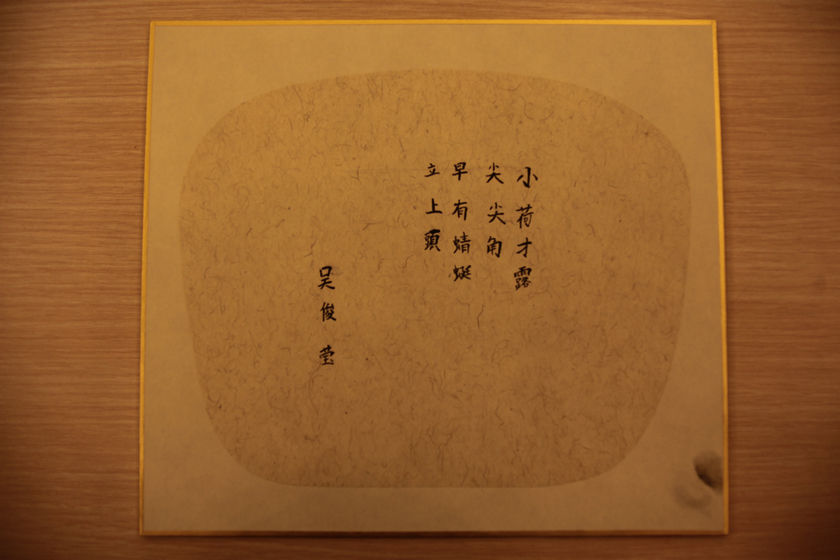 小荷才露
尖尖角
早有蜻蜓
立上頭
吴俊莹